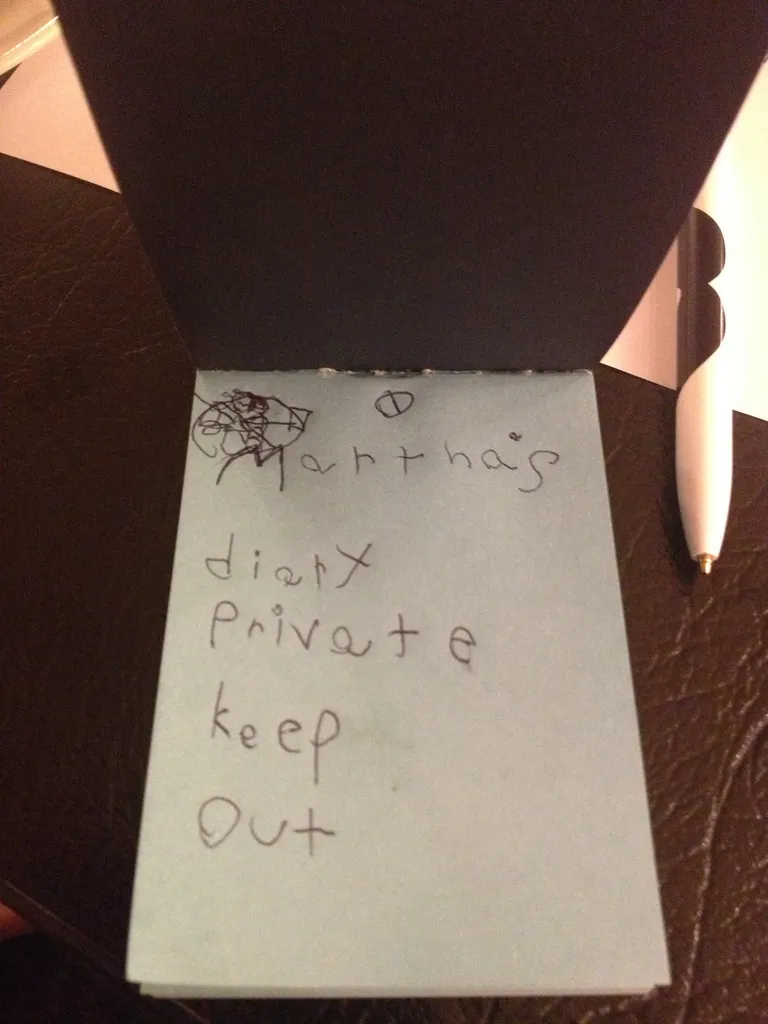 Martha's
diary
Private
keep
Out